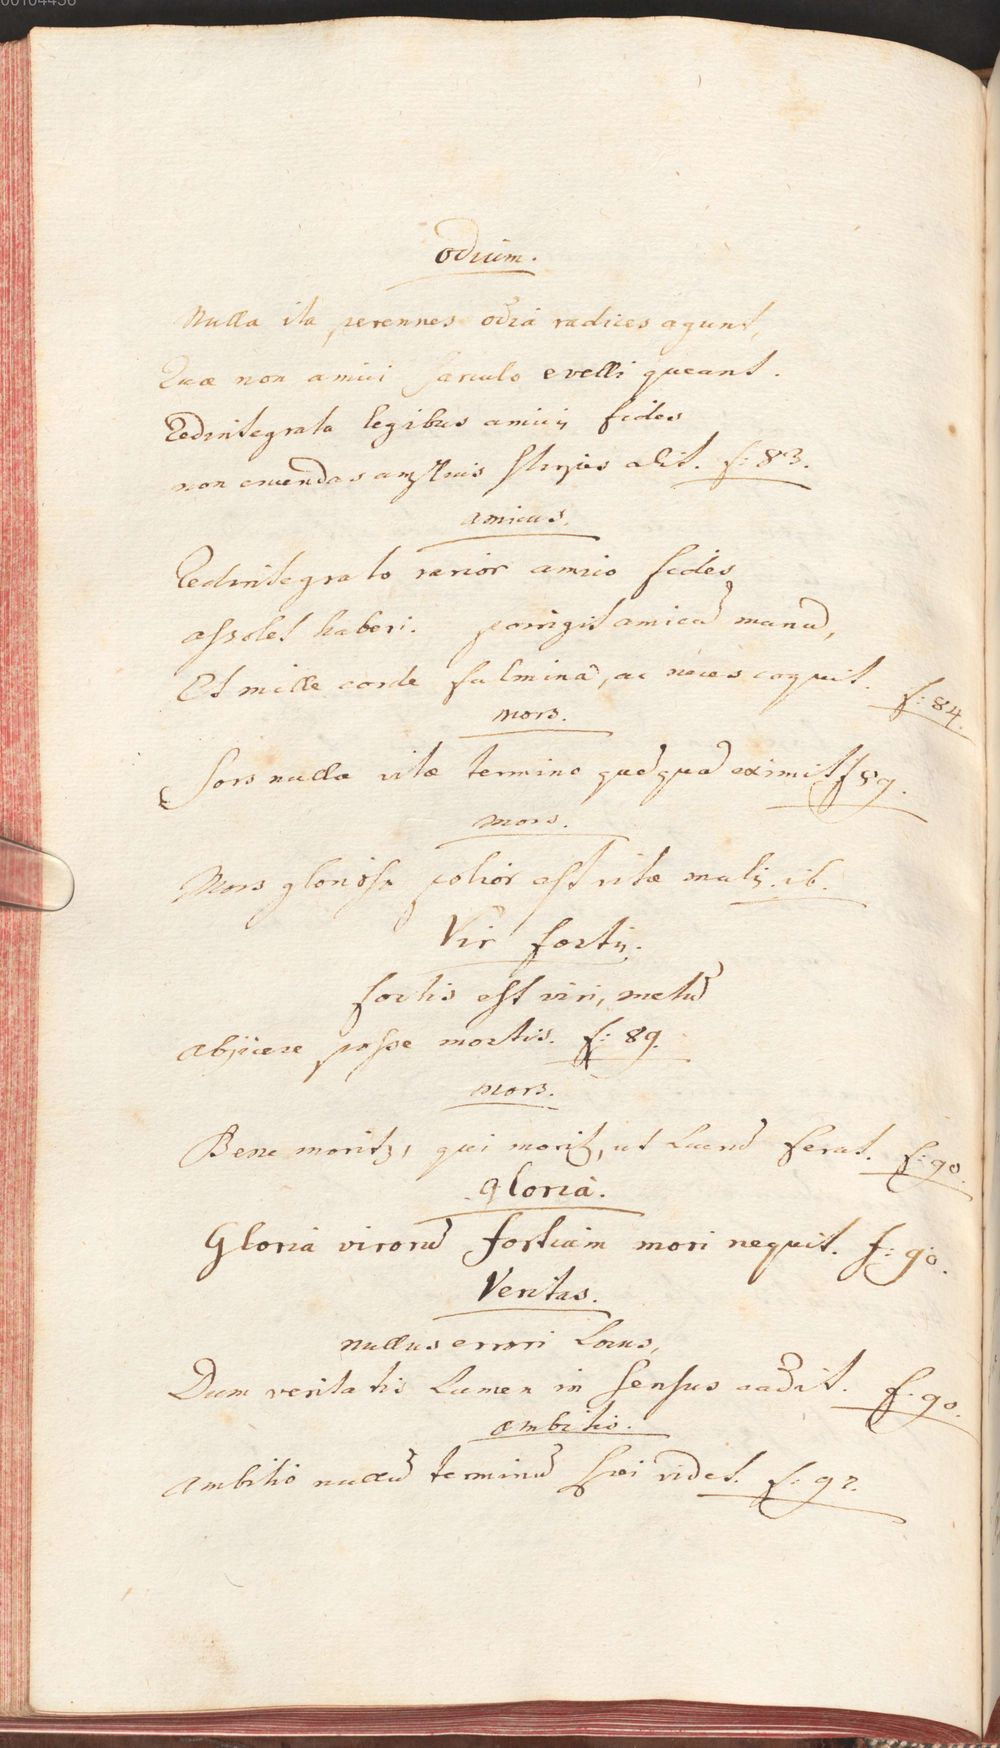 00104436
odium.
Nulla ita perennes odia radices agunt,
Quæ non amici sarculo evelli queant.
Redintegrata legibus amicis fides
non eruendas stirpes alit. f: 83.
amicus.
Redintegrato rarior amico fides
assolet haberi. porrigit amicũ manũ,
Et mille corde fulmina, ac neces coquit. f: 84.
mors.
Sors nulla vitæ termino quẽquã eximit f 89.
mors.
Mors gloriosa potior est vitæ malis. ib.
Vir fortis.
fortis est viri, metũ
abjicere posse mortis. f: 89.
mors.
Bene moritr, qui moritr, ut lucrũ ferat. f: 90.
gloria.
Gloria virorũ fortium mori nequit. f: 90.
Veritas.
nullus errori locus,
Dum veritatis lumen in sensus cadit. f: 90.
ambitio.
ambitio nullũ terminũ sui videt. f: 92.